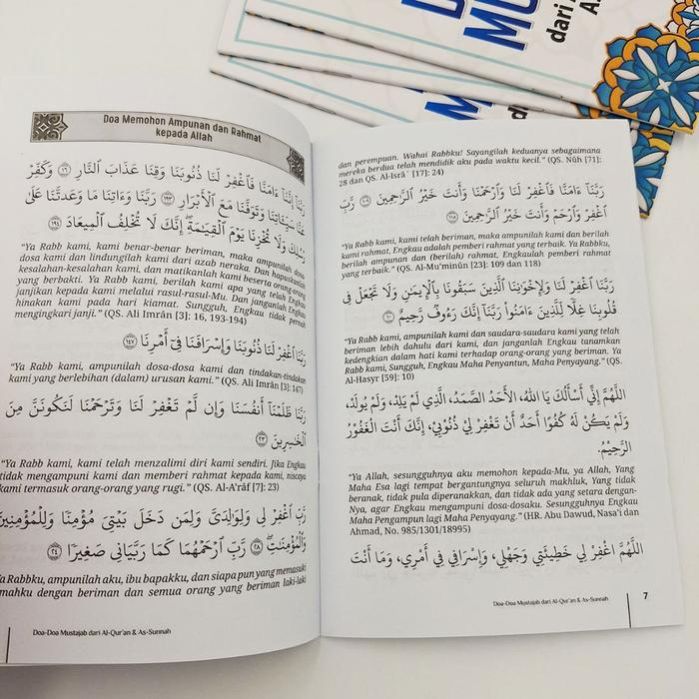 Doa Memohon Ampunan dan Rahmat
kepada Allah
رَبَّنَآ إِنَّنَآ ءَامَنَّا فَٱغْفِرْ لَنَا ذُنُوبَنَا وَقِنَا عَذَابَ النَّارِ ۝١٦ وَكَفِّرْ
عَنَّا سَيِّـَٔاتِنَا وَتَوَفَّنَا مَعَ الْأَبْرَارِ ۝١٩٣ رَبَّنَا وَءَاتِنَا مَا وَعَدتَّنَا عَلَىٰ
رُسُلِكَ وَلَا تُخْزِنَا يَوْمَ الْقِيَٰمَةِ ۗ إِنَّكَ لَا تُخْلِفُ الْمِيعَادَ ۝١٩٤
“Ya Rabb kami, kami benar-benar beriman, maka ampunilah dosa-
dosa kami dan lindungilah kami dari azab neraka. Dan hapuskanlah
kesalahan-kesalahan kami, dan matikanlah kami beserta orang-orang
yang berbakti. Ya Rabb kami, berilah kami apa yang telah Engkau
janjikan kepada kami melalui rasul-rasul-Mu. Dan janganlah Engkau
hinakan kami pada hari kiamat. Sungguh, Engkau tidak pernah
mengingkari janji.” (QS. Ali Imrân [3]: 16, 193-194)
رَبَّنَا ٱغْفِرْ لَنَا ذُنُوبَنَا وَإِسْرَافَنَا فِىٓ أَمْرِنَا ۝١٤٧
“Ya Rabb kami, ampunilah dosa-dosa kami dan tindakan-tindakan
kami yang berlebihan (dalam) urusan kami.” (QS. Ali Imrân [3]: 147)
رَبَّنَا ظَلَمْنَآ أَنفُسَنَا وَإِن لَّمْ تَغْفِرْ لَنَا وَتَرْحَمْنَا لَنَكُونَنَّ مِنَ
الْخَٰسِرِينَ ۝٢٣
“Ya Rabb kami, kami telah menzalimi diri kami sendiri. Jika Engkau
tidak mengampuni kami dan memberi rahmat kepada kami, niscaya
kami termasuk orang-orang yang rugi.” (QS. Al-A’râf [7]: 23)
رَّبِّ ٱغْفِرْ لِى وَلِوَٰلِدَىَّ وَلِمَن دَخَلَ بَيْتِىَ مُؤْمِنًا وَلِلْمُؤْمِنِينَ
وَالْمُؤْمِنَٰتِ ۝٢٨ رَّبِّ ٱرْحَمْهُمَا كَمَا رَبَّيَانِى صَغِيرًا ۝٢٤
Ya Rabbku, ampunilah aku, ibu bapakku, dan siapa pun yang memasuki
rumahku dengan beriman dan semua orang yang beriman laki-laki
Doa-Doa Mustajab dari Al-Qur’an & As-Sunnah
dan perempuan. Wahai Rabbku! Sayangilah keduanya sebagaimana
mereka berdua telah mendidik aku pada waktu kecil.” (QS. Nûh [71]:
28 dan QS. Al-Isrâ` [17]: 24)
رَبَّنَآ ءَامَنَّا فَٱغْفِرْ لَنَا وَٱرْحَمْنَا وَأَنتَ خَيْرُ الرَّٰحِمِينَ ۝١٠٩ رَّبِّ
ٱغْفِرْ وَٱرْحَمْ وَأَنتَ خَيْرُ الرَّٰحِمِينَ ۝١١٨
“Ya Rabb kami, kami telah beriman, maka ampunilah kami dan berilah
kami rahmat, Engkau adalah pemberi rahmat yang terbaik. Ya Rabbku,
berilah ampunan dan (berilah) rahmat, Engkaulah pemberi rahmat
yang terbaik.” (QS. Al-Mu’minûn [23]: 109 dan 118)
رَبَّنَا ٱغْفِرْ لَنَا وَلِإِخْوَٰنِنَا الَّذِينَ سَبَقُونَا بِٱلْإِيمَٰنِ وَلَا تَجْعَلْ فِى
قُلُوبِنَا غِلًّا لِّلَّذِينَ ءَامَنُوا۟ رَبَّنَآ إِنَّكَ رَءُوفٌ رَّحِيمٌ ۝١٠
“Ya Rabb kami, ampunilah kami dan saudara-saudara kami yang telah
beriman lebih dahulu dari kami, dan janganlah Engkau tanamkan
kedengkian dalam hati kami terhadap orang-orang yang beriman. Ya
Rabb kami, Sungguh, Engkau Maha Penyantun, Maha Penyayang.” (QS.
Al-Hasyr [59]: 10)
اللَّهُمَّ إِنِّي أَسْأَلُكَ يَا اللهُ، الأَحَدُ الصَّمَدُ، الَّذِي لَمْ يَلِدْ، وَلَمْ يُولَدْ،
وَلَمْ يَكُنْ لَهُ كُفُوًا أَحَدٌ أَنْ تَغْفِرَ لِي ذُنُوْبِيْ، إِنَّكَ أَنْتَ الْغَفُوْرُ
الرَّحِيْمُ.
“Ya Allah, sesungguhnya aku memohon kepada-Mu, ya Allah, Yang
Maha Esa lagi tempat bergantungnya seluruh makhluk, Yang tidak
beranak, tidak pula diperanakkan, dan tidak ada yang setara dengan-
Nya, agar Engkau mengampuni dosa-dosaku. Sesungguhnya Engkau
Maha Pengampun lagi Maha Penyayang.” (HR. Abu Dawud, Nasa’i dan
Ahmad, No. 985/1301/18995)
اللَّهُمَّ اغْفِرْ لِي خَطِيئَتِي وَجَهْلِي، وَإِسْرَافِي فِي أَمْرِي، وَمَا أَنْتَ
Doa-Doa Mustajab dari Al-Qur’an & As-Sunnah
7
MU
dari